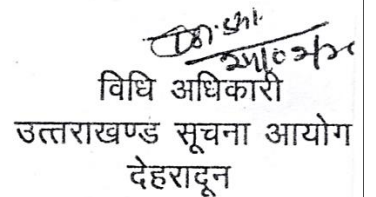 विधि अधिकारी
उत्तराखण्ड सूचना आयोग
देहरादून